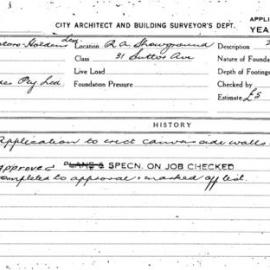 CITY ARCHITECT AND BUILDING SURVEYOR'S DEPT.
APPLIC
YEAR
Location R.A. Showground
Description
Class 31 Sutton Ave
Nature of Founda
Live Load
Depth of Footings
Pty Ltd
Foundation Pressure
Checked by
Estimate £5
HISTORY
Application to erect canvas side walls
Approved
PLANS SPECN. ON JOB CHECKED
Completed to approval - marked off list.